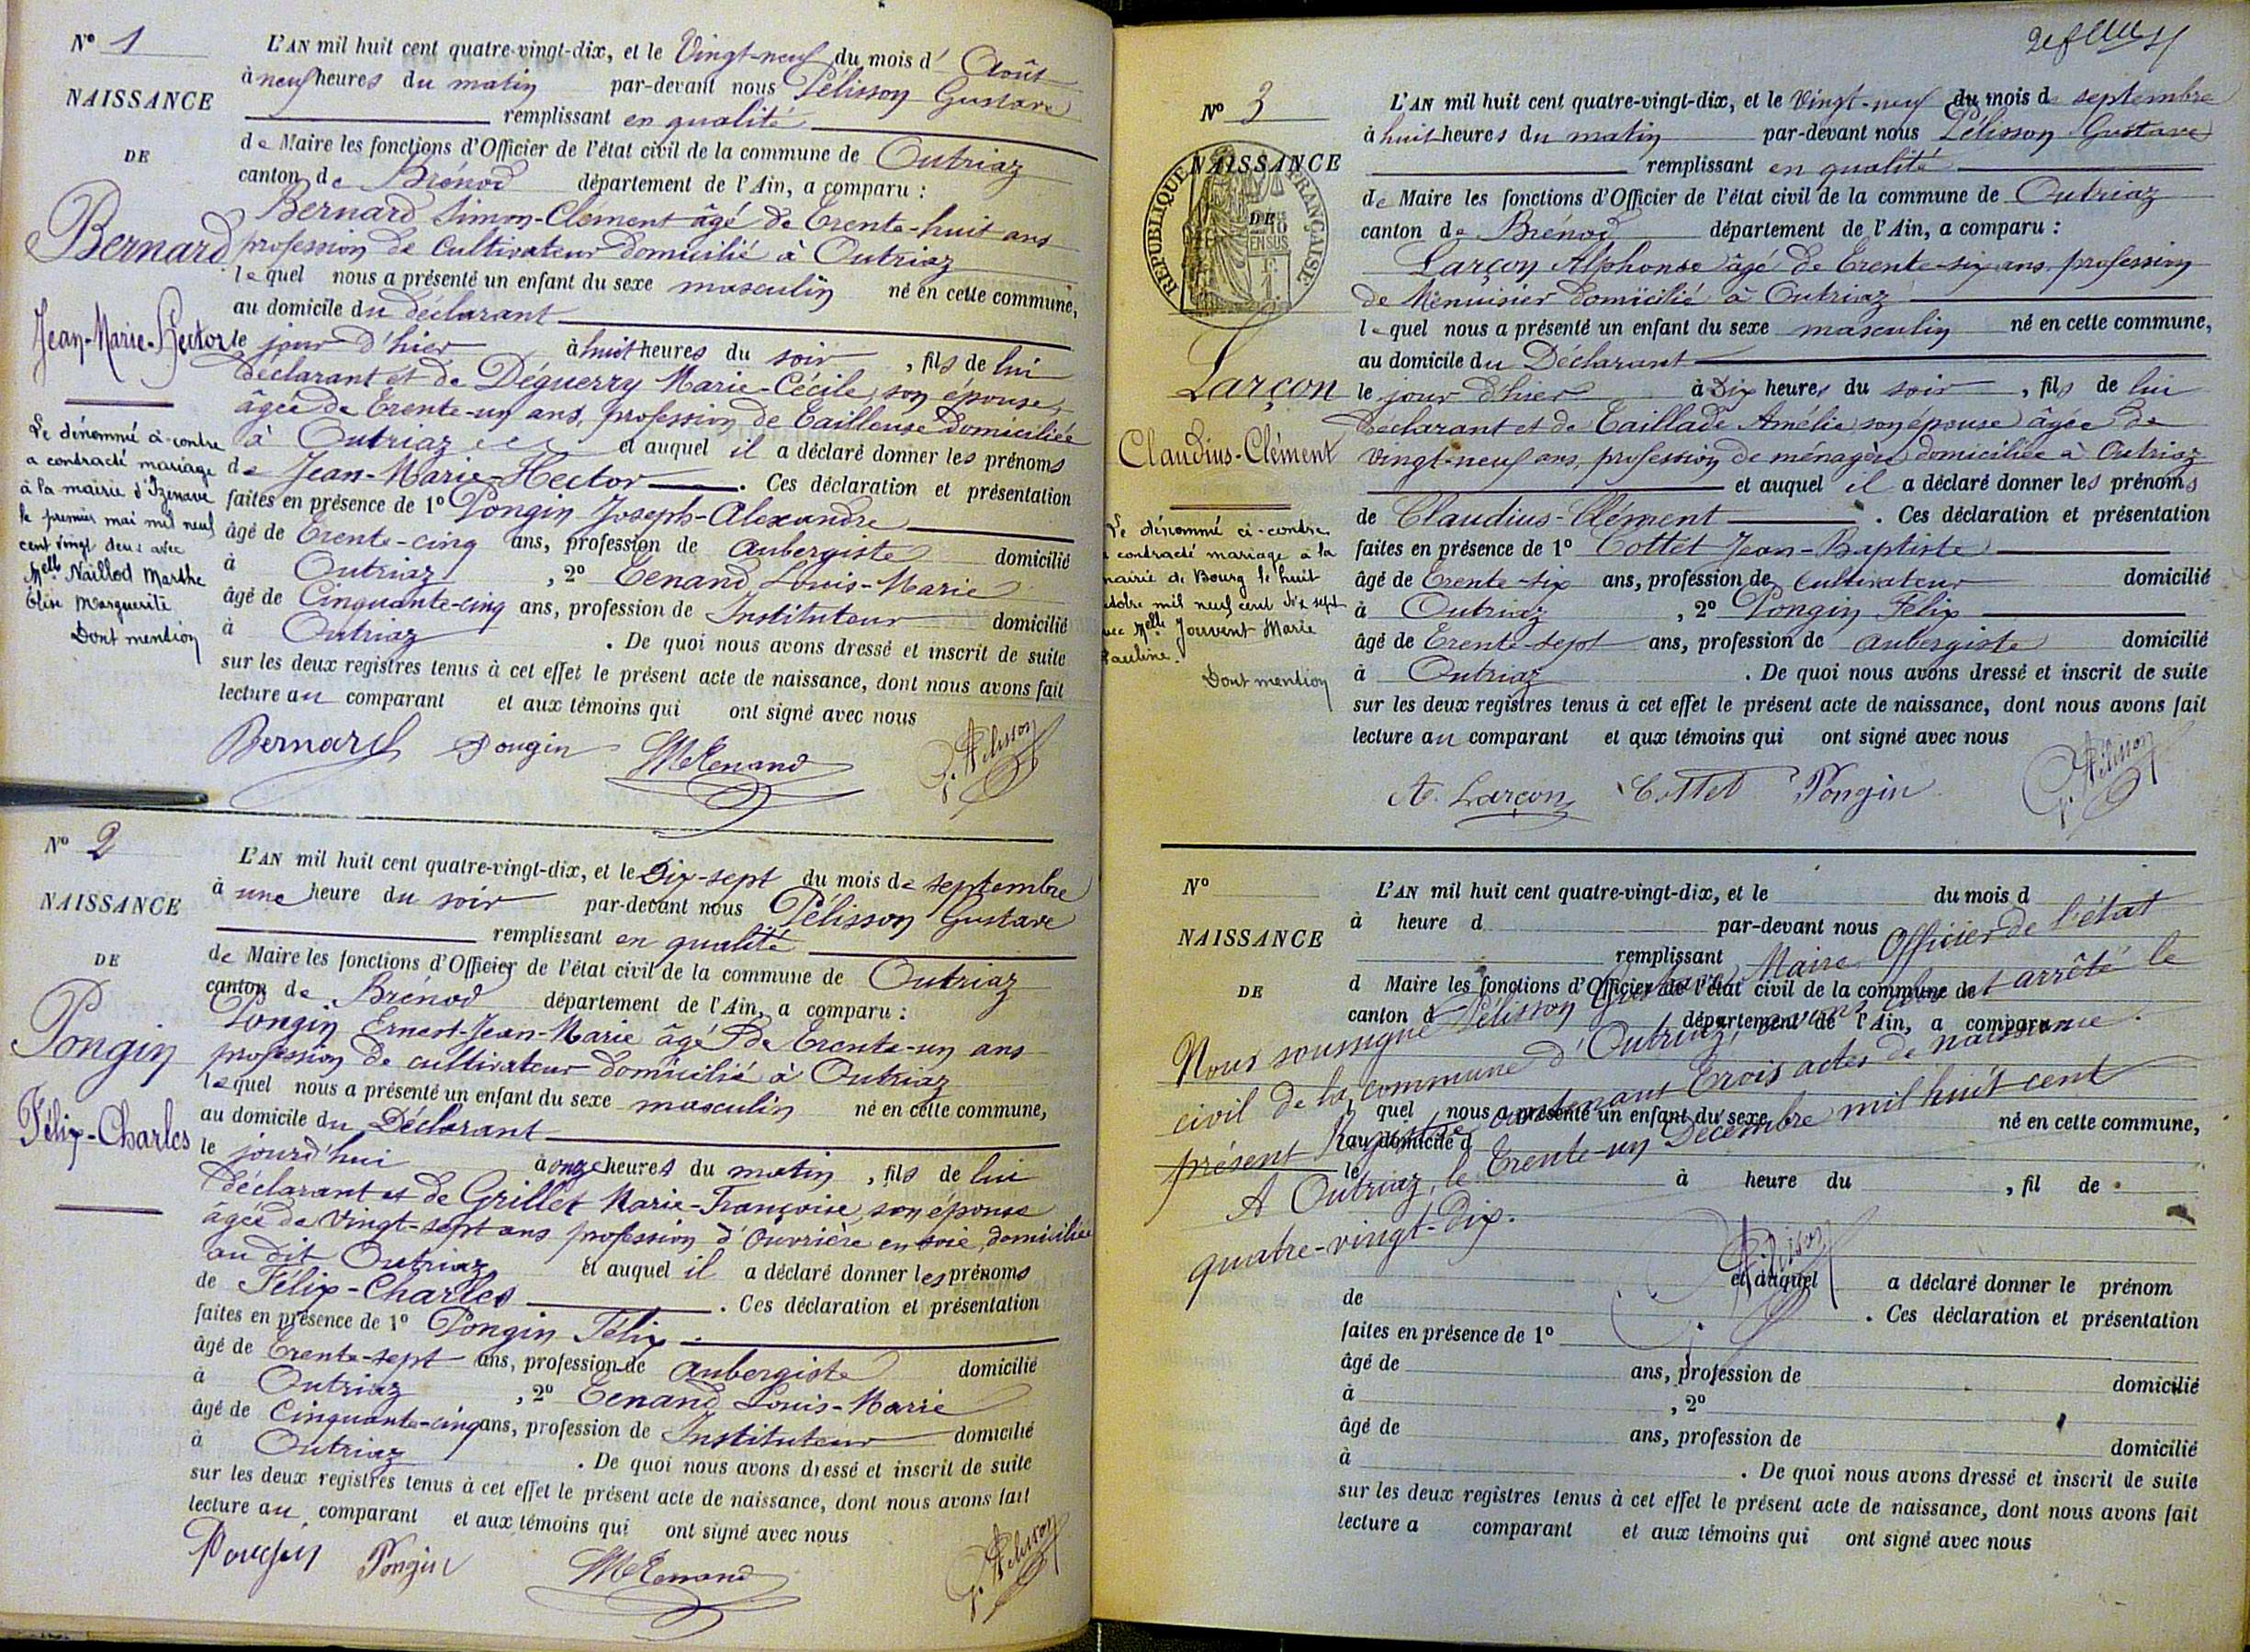 N° 1
NAISSANCE
DE
Bernard
Jean-Marie-Hector
Le dénommé ci-contre
a contracté mariage
à la mairie d'Izenave
le premier mai mil neuf
cent vingt deux avec
Melle Naillod Marthe
Élise Marguerite
Dont mention
L'AN mil huit cent quatre-vingt-dix, et le Vingt-neuf du mois d' Août
à neuf heures du matin par-devant nous Pélisson Gustave
remplissant en qualité
de Maire les fonctions d'Officier de l'état civil de la commune de Outriaz
canton de Brénod département de l'Ain, a comparu :
Bernard Simon-Clément âgé de Trente-huit ans
profession de Cultivateur domicilié à Outriaz
lequel nous a présenté un enfant du sexe masculin né en cette commune,
au domicile du déclarant
le jour d'hier à huit heures du soir , fils de lui
déclarant et de Déguerry Marie-Cécile, son épouse,
âgée de Trente-un ans, profession de Tailleuse domiciliée
à Outriaz et auquel il a déclaré donner les prénoms
de Jean-Marie-Hector . Ces déclaration et présentation
faites en présence de 1° Pongin Joseph-Alexandre
âgé de Trente-cinq ans, profession de Aubergiste domicilié
à Outriaz , 2° Tenand Louis-Marie
âgé de Cinquante-cinq ans, profession de Instituteur domicilié
à Outriaz . De quoi nous avons dressé et inscrit de suite
sur les deux registres tenus à cet effet le présent acte de naissance, dont nous avons fait
lecture au comparant et aux témoins qui ont signé avec nous
Bernard Pongin LMTenand G. Pélisson
N° 2
NAISSANCE
DE
Pongin
Félix-Charles
L'AN mil huit cent quatre-vingt-dix, et le Dix-sept du mois de septembre
à une heure du soir par-devant nous Pélisson Gustave
remplissant en qualité
de Maire les fonctions d'Officier de l'état civil de la commune de Outriaz
canton de Brénod département de l'Ain, a comparu :
Pongin Ernest-Jean-Marie âgé de Trente-un ans
profession de cultivateur domicilié à Outriaz
lequel nous a présenté un enfant du sexe masculin né en cette commune,
au domicile du Déclarant
le jourd'hui à onze heures du matin , fils de lui
déclarant et de Grillet Marie-Françoise, son épouse
âgée de Vingt-sept ans profession d'Ouvrière en soie, domiciliée
au dit Outriaz et auquel il a déclaré donner les prénoms
de Félix-Charles . Ces déclaration et présentation
faites en présence de 1° Pongin Félix
âgé de Trente-sept ans, profession de Aubergiste domicilié
à Outriaz , 2° Tenand Louis-Marie
âgé de Cinquante-cinq ans, profession de Instituteur domicilié
à Outriaz . De quoi nous avons dressé et inscrit de suite
sur les deux registres tenus à cet effet le présent acte de naissance, dont nous avons fait
lecture au comparant et aux témoins qui ont signé avec nous
Pongin Pongin LMTenand G. Pélisson
N° 3
NAISSANCE
DE
RÉPUBLIQUE FRANÇAISE
Larçon
Claudius-Clément
Le dénommé ci-contre
a contracté mariage à la
mairie de Bourg le huit
octobre mil neuf cent dix sept
avec Melle Jouvent Marie
Pauline.
Dont mention
L'AN mil huit cent quatre-vingt-dix, et le Vingt-neuf du mois de septembre
à huit heures du matin par-devant nous Pélisson Gustave
remplissant en qualité
de Maire les fonctions d'Officier de l'état civil de la commune de Outriaz
canton de Brénod département de l'Ain, a comparu :
Larçon Alphonse âgé de Trente-six ans, profession
de Menuisier domicilié à Outriaz
lequel nous a présenté un enfant du sexe masculin né en cette commune,
au domicile du Déclarant
le jour d'hier à Dix heures du soir , fils de lui
déclarant et de Taillade Amélie, son épouse âgée de
vingt-neuf ans, profession de ménagère domiciliée à Outriaz
et auquel il a déclaré donner les prénoms
de Claudius-Clément . Ces déclaration et présentation
faites en présence de 1° Cottet Jean-Baptiste
âgé de Trente-six ans, profession de Cultivateur domicilié
à Outriaz , 2° Pongin Félix
âgé de Trente-sept ans, profession de Aubergiste domicilié
à Outriaz . De quoi nous avons dressé et inscrit de suite
sur les deux registres tenus à cet effet le présent acte de naissance, dont nous avons fait
lecture au comparant et aux témoins qui ont signé avec nous
A. Larçon Cottet Pongin G. Pélisson
N°
NAISSANCE
DE
L'AN mil huit cent quatre-vingt-dix, et le du mois d
à heure d par-devant nous
remplissant
d Maire les fonctions d'Officier de l'état civil de la commune de
canton d département de l'Ain, a comparu
Nous soussigné Pélisson Gustave, Maire Officier de l'état
civil de la commune d'Outriaz, avons clos et arrêté le
présent Registre contenant Trois actes de naissance.
A Outriaz, le Trente-un Décembre mil huit cent
quatre-vingt-dix.
quel nous a présenté un enfant du sexe né en cette commune,
au domicile d
le à heure du , fil de
Pélisson
et auquel a déclaré donner le prénom
de . Ces déclaration et présentation
faites en présence de 1°
âgé de ans, profession de domicilié
à , 2°
âgé de ans, profession de domicilié
à . De quoi nous avons dressé et inscrit de suite
sur les deux registres tenus à cet effet le présent acte de naissance, dont nous avons fait
lecture a comparant et aux témoins qui ont signé avec nous